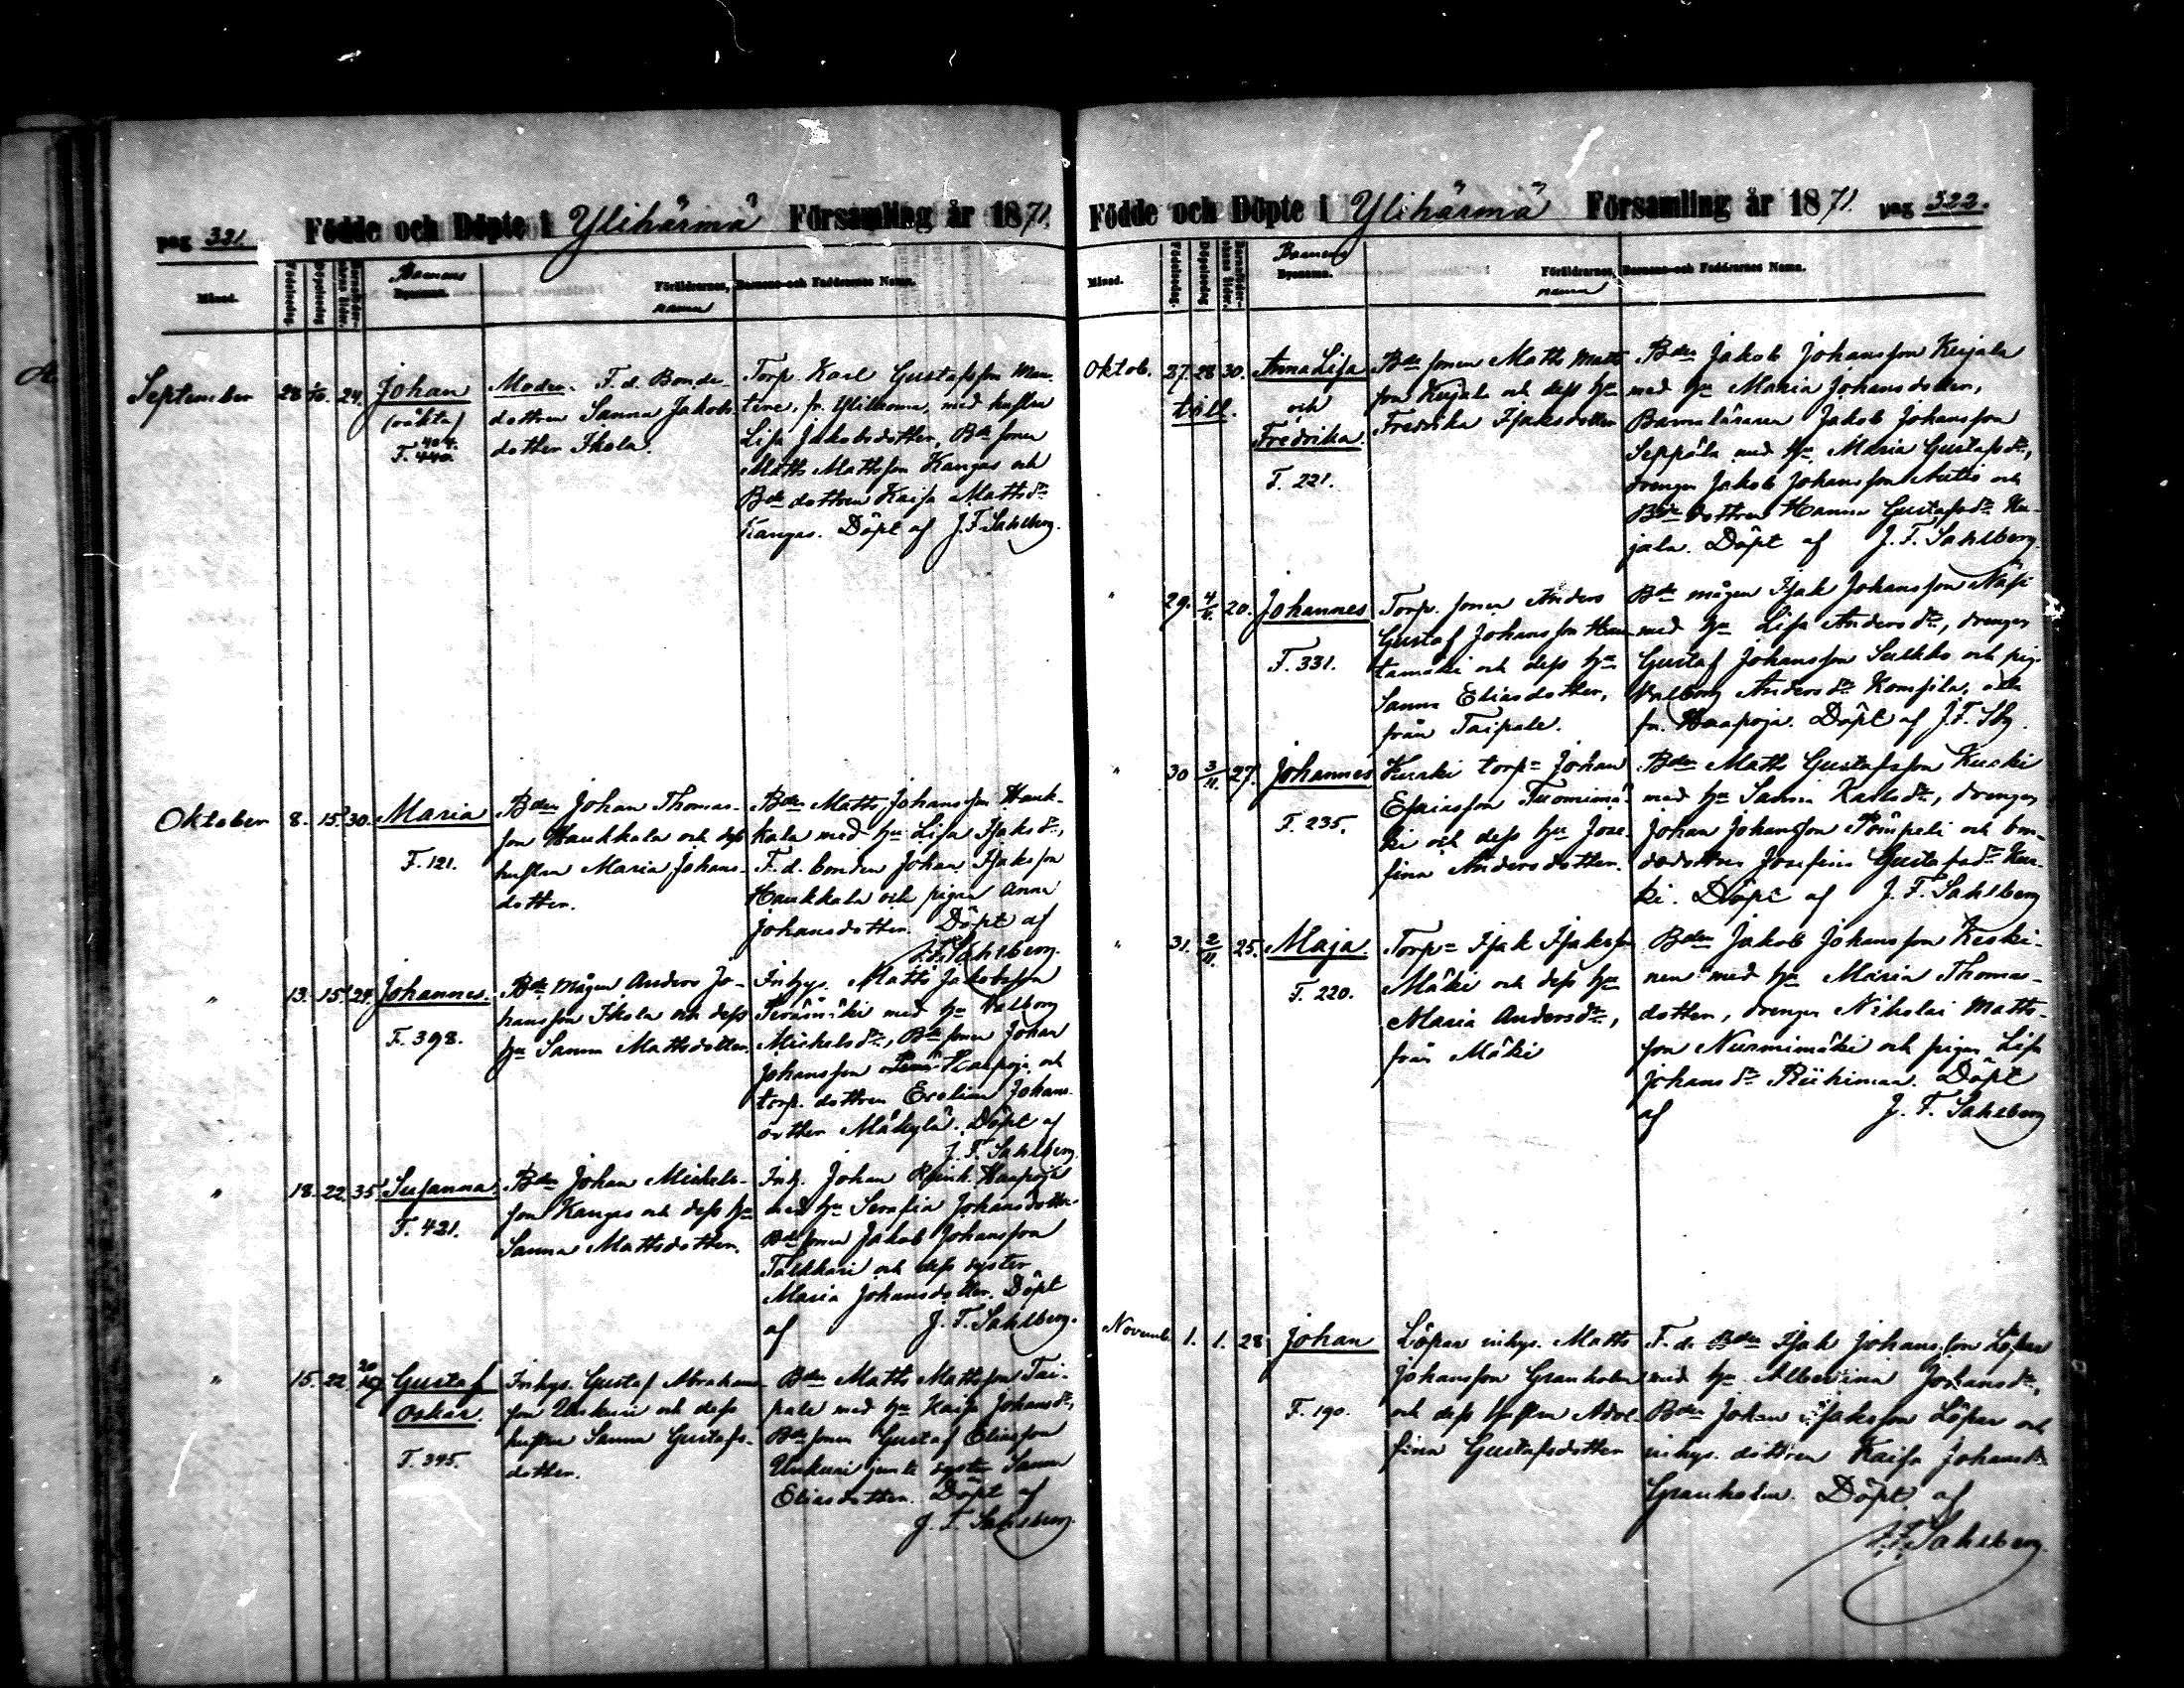 pag 321. Födde och Döpte i Ylihärmä Församling år 1871.
Månad.
Födelsedag
Döpelsedag
Barnens
Föräldrarnes, Barnens och Faddrarnes Namn.
namn
September 28 1/10. 24. Johan
(oäkta)
404.
F. 440.
Modren F. d. Bonde-
dottren Sanna Jakobs-
dotter Ikola.
Torp. Karl Gustafsson
med hustru
Lisa Jakobsdotter, Bde sonen
Matts Mattsson Kangas och
Bde dottren Kaisa Mattsdr
Kangas. Döpt af J. F. Sahlberg.
Oktober 8. 15. 30. Maria
F. 121.
Bden Johan Thomas-
son Haukkala och dess
hustru Maria Johans-
dotter.
Bden Matts Johansson Hauk-
kala med hu Lisa Isaksdr,
F. d. bonden Johan Isaksson
Haukkala och pigan Anna
Johansdotter. Döpt af
J. F. Sahlberg.
" 13. 15. 24. Johannes.
F. 398.
Bde mågen Anders Jo-
hansson Ikola och dess
hu Sanna Mattsdotter.
Inhys. Matts Jakobsson
med hu Walborg
Michelsdr, Bde sonen Johan
Johansson Haapoja och
torp. dottren Evelina Johans-
dotter Mäkylä. Döpt af
J. F. Sahlberg.
" 18. 22. 35. Susanna.
F. 421.
Bden Johan Michels-
son Kangas och dess hu
Sanna Mattsdotter.
Inh. Johan Henrik Haapoja
med hu Serafia Johansdotter
Bde sonen Jakob Johansson
Talkkari och dess syster
Maria Johansdotter. Döpt
af J. F. Sahlberg.
" 15. 22. 20 Gustaf
Oskar.
F. 395.
Inhys. Gustaf Abrahams-
son Unkuri och dess
hustru Sanna Gustafs-
dotter.
Bden Matts Mattsson Tai-
pale med hu Kaisa Johansdr,
Bde sonen Gustaf Eliasson
Unkuri jemte syster Sanna
Eliasdotter. Döpt af
J. F. Sahlberg.
Födde och Döpte i Ylihärmä Församling år 1871. pag 322.
Månad.
Födelsedag.
Döpelsedag
Barnens
Föräldrarnes, Barnens och Faddrarnes Namn.
namn
Oktob. 27. 28 30. Anna Lisa
tvill. och
Fredrika.
F. 221.
Bde sonen Matts Matts-
son Kujala och dess hu
Fredrika Isaksdotter
Bden Jakob Johansson Kujala
med hu Maria Johansdotter,
Barnaläraren Jakob Johansson
Seppälä med hu Maria Gustafsdr,
drengen Jakob Johansson Antio och
Bde dottren Hanna Gustafsdr Ku-
jala. Döpt af J. F. Sahlberg.
" 29. 4/11. 20. Johannes
F. 331.
Torp. sonen Anders
Gustaf Johansson Hau-
tamäki och dess hu
Sanna Eliasdotter,
från Taipale.
Bde mågen Isak Johansson Näsi
med hu Lisa Andersdr, drengen
Gustaf Johansson Sulkko och pig.
Walborg Andersdr Kompila, alla
fr. Haapoja. Döpt af J. F. Sbg.
" 30 3/11. 27. Johannes
F. 235.
Kuski torp= Johan
Esaiasson Tuomimä-
ki och dess hu Jose-
fina Andersdotter.
Bden Matts Gustafsson Kuski
med hu Sanna Karlsdr, drengen
Johan Johansson Pömpeli och bon-
dedottren Josefina Gustafsdr Kus-
ki. Döpt af J. F. Sahlberg
" 31. 2/11. 25. Maja.
F. 220.
Torp= Isak Isaksson
Mäki och dess hu
Maria Andersdr,
från Mäki
Bden Jakob Johansson Keski-
nen med hu Maria Thomas-
dotter, drengen Nikolai Matts-
son Nurmimäki och pigan Lisa
Johansdr Riihimaa. Döpt
af J. F. Sahlberg
Novemb. 1. 1. 28 Johan
F. 190.
Löpar inhys. Matts
Johansson Granholm
och dess hustru Adol-
fina Gustafsdotter
F. d. Bden Isak Johansson Löpar
med hu Albertina Johansdr,
Bden Johan Isaksson Löpar och
inhys. dottren Kaisa Johansdr
Granholm. Döpt af
J. F. Sahlberg.